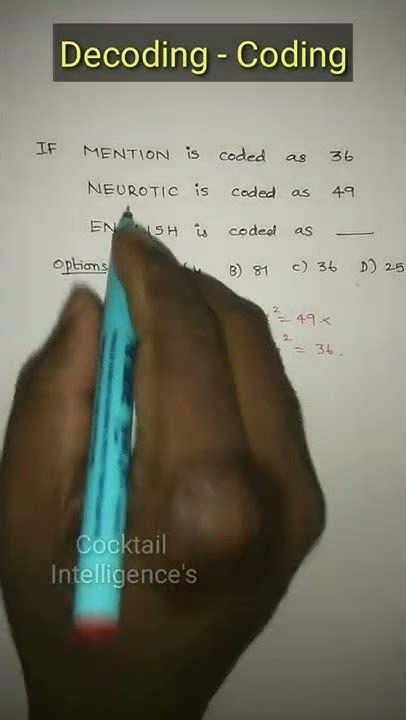 Decoding - Coding
IF MENTION is coded as 36
NEUROTIC is coded as 49
is coded as ___
Options B) 81 C) 36 D) 25
² = 49 ×
² = 36.
Cocktail
Intelligence's